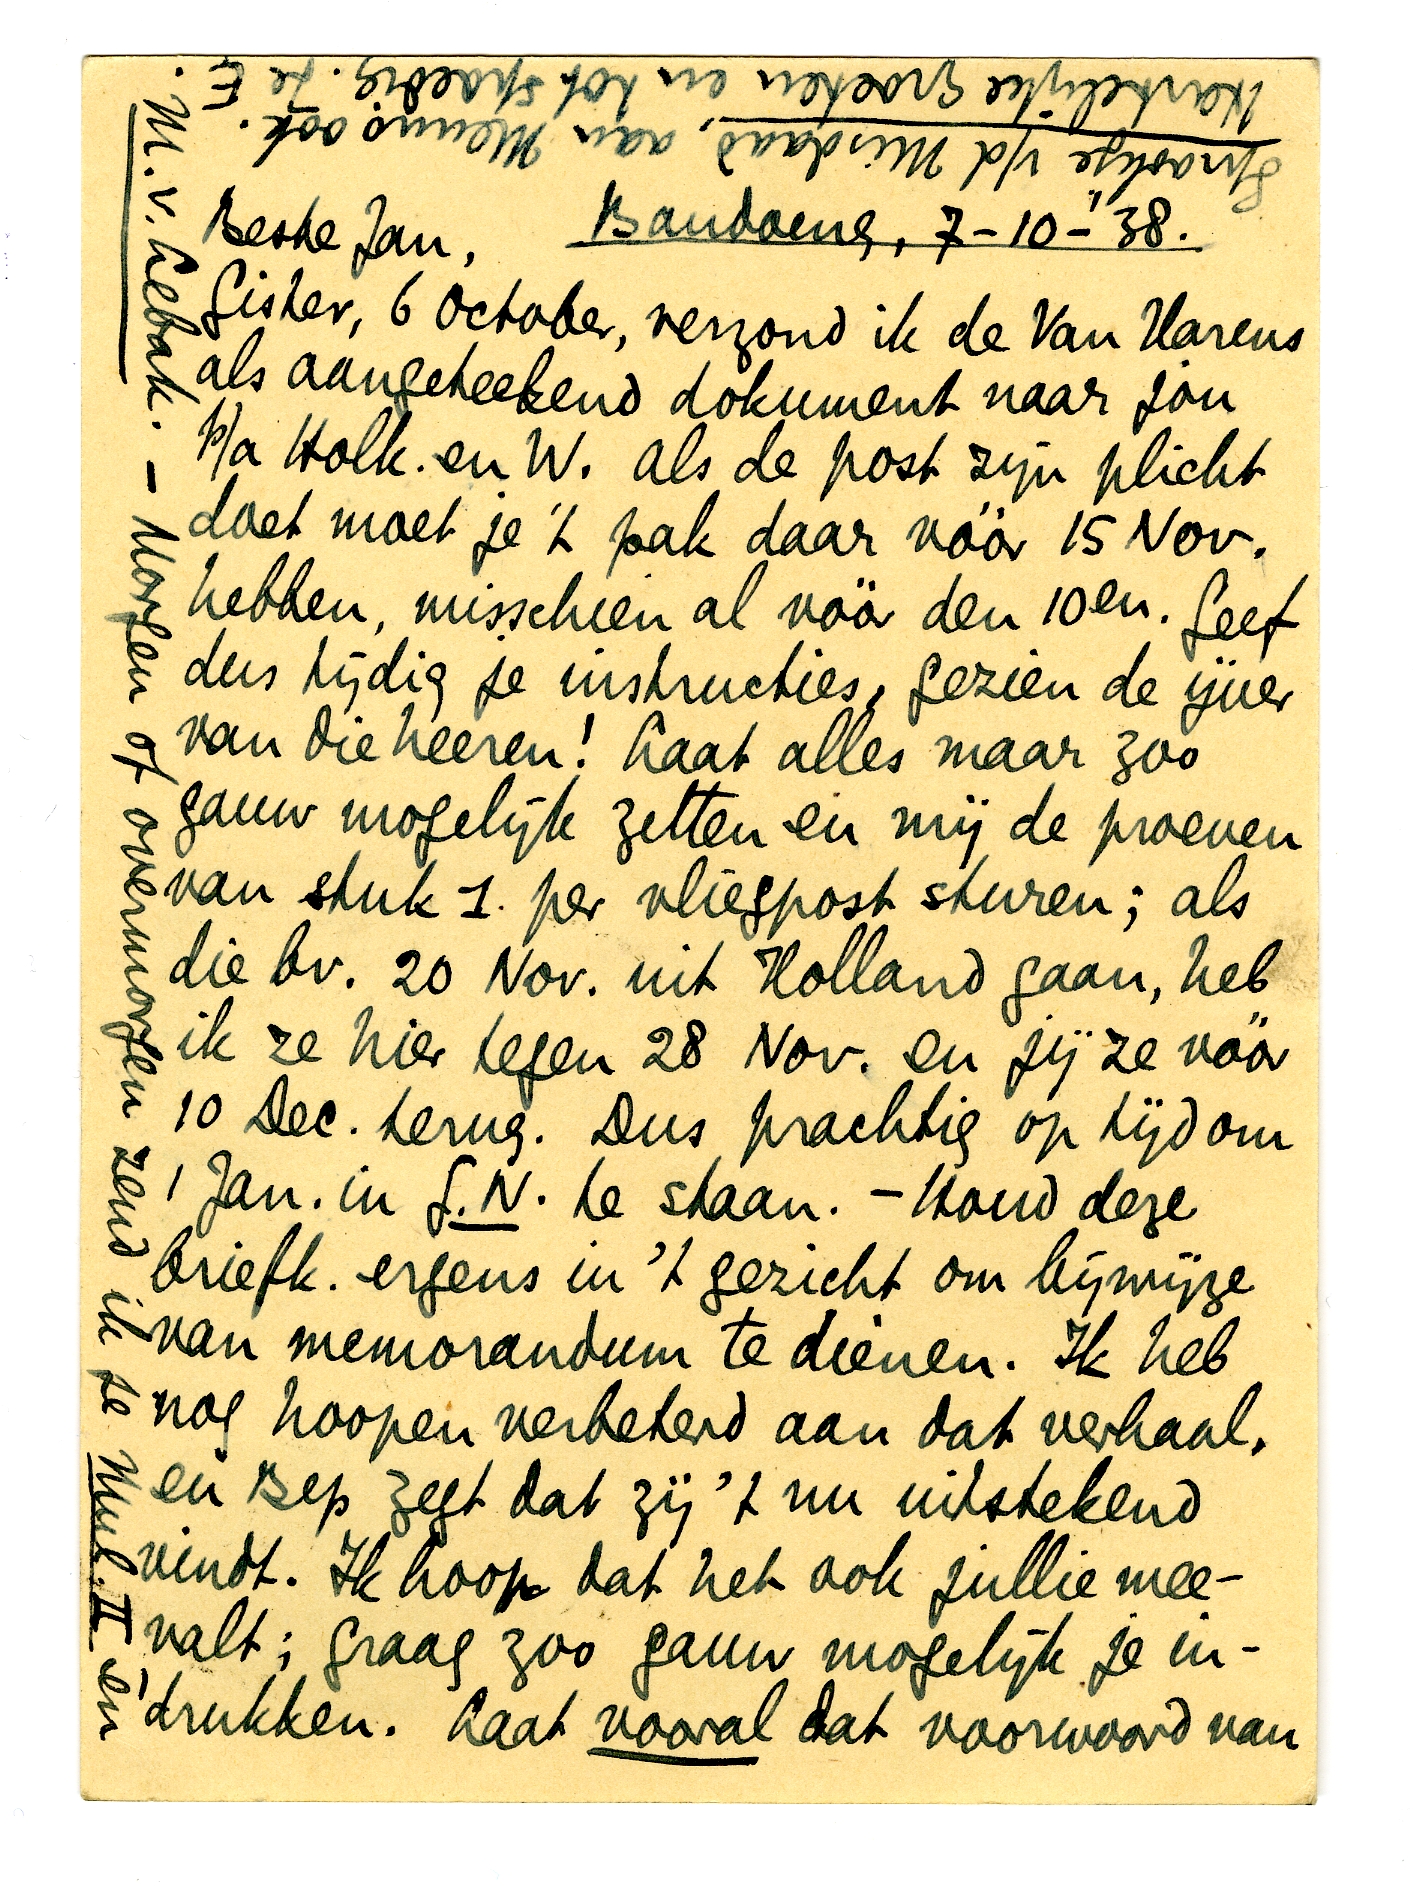 Beste Jan,
Bandoeng, 7-10-'38.
Gister, 6 October, verzond ik de Van Harens
als aangeteekend dokument naar jou
p/a Holk. en W. Als de post zijn plicht
doet moet je 't pak daar vóór 15 Nov.
hebben, misschien al vóór den 10en. Geef
dus tijdig je instructies, gezien de ijver
van die heeren! Laat alles maar zoo
gauw mogelijk zetten en mij de proeven
van stuk 1. per vliegpost sturen; als
die bv. 20 Nov. uit Holland gaan, heb
ik ze hier tegen 28 Nov. en jij ze vóór
10 Dec. terug. Dus prachtig op tijd om
1 Jan. in G.N. te staan. - Houd deze
briefk. ergens in 't gezicht om bijwijze
van memorandum te dienen. Ik heb
nog hoopen verbeterd aan dat verhaal,
en Bep zegt dat zij 't nu uitstekend
vindt. Ik hoop dat het ook jullie mee-
valt; graag zoo gauw mogelijk je in-
drukken. Laat vooral dat voorwoord van
M. v. Lebak. — Morgen of overmorgen zend ik je Mul. II en
Sprookje v/d Misdaad, aan Menno ook.
Hartelijke groeten en tot spoedig. Je E.